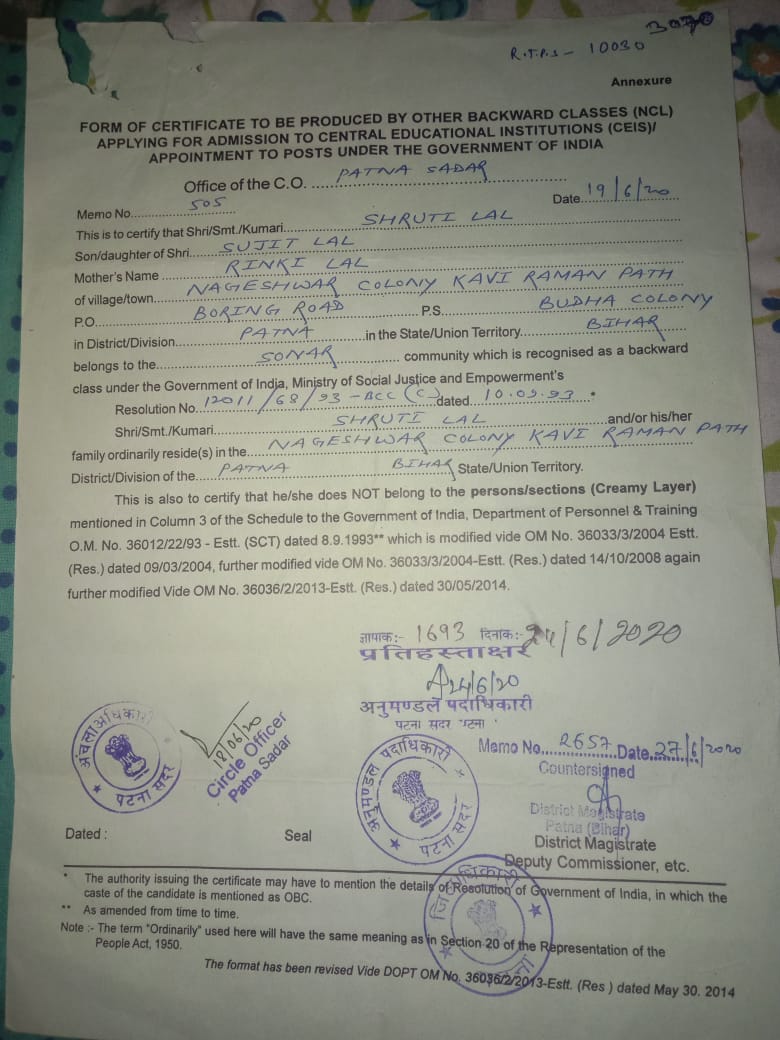 3070
R.T.P.S - 10030
Annexure
FORM OF CERTIFICATE TO BE PRODUCED BY OTHER BACKWARD CLASSES (NCL)
APPLYING FOR ADMISSION TO CENTRAL EDUCATIONAL INSTITUTIONS (CEIS)/
APPOINTMENT TO POSTS UNDER THE GOVERNMENT OF INDIA
Office of the C.O. PATNA SADAR
Memo No. 505 Date 19/6/20
This is to certify that Shri/Smt./Kumari SHRUTI LAL
Son/daughter of Shri SUJIT LAL
Mother's Name RINKI LAL
of village/town NAGESHWAR COLONY KAVI RAMAN PATH
P.O. BORING ROAD P.S. BUDHA COLONY
in District/Division PATNA in the State/Union Territory BIHAR
belongs to the SONAR community which is recognised as a backward
class under the Government of India, Ministry of Social Justice and Empowerment's
Resolution No. 12011/68/93-BCC (C) dated 10.09.93 *
Shri/Smt./Kumari SHRUTI LAL and/or his/her
family ordinarily reside(s) in the NAGESHWAR COLONY KAVI RAMAN PATH
District/Division of the PATNA BIHAR State/Union Territory.
This is also to certify that he/she does NOT belong to the persons/sections (Creamy Layer)
mentioned in Column 3 of the Schedule to the Government of India, Department of Personnel & Training
O.M. No. 36012/22/93 - Estt. (SCT) dated 8.9.1993** which is modified vide OM No. 36033/3/2004 Estt.
(Res.) dated 09/03/2004, further modified vide OM No. 36033/3/2004-Estt. (Res.) dated 14/10/2008 again
further modified Vide OM No. 36036/2/2013-Estt. (Res.) dated 30/05/2014.
ज्ञापाक:- 1693 दिनाक:- 24/6/2020
प्रतिहस्ताक्षर
24/6/20
अनुमण्डल पदाधिकारी
पटना सदर पटना
अंचलाअधिकारी
पटना सदर
18/06/20
Circle Officer
Patna Sadar
अनुमण्डल पदाधिकारी
पटना सदर
Memo No. 2657 Date 27/6/2020
Countersigned
District Magistrate
Patna (Bihar)
District Magistrate
Deputy Commissioner, etc.
Dated : Seal
* The authority issuing the certificate may have to mention the details of Resolution of Government of India, in which the
caste of the candidate is mentioned as OBC.
** As amended from time to time.
Note :- The term "Ordinarily" used here will have the same meaning as in Section 20 of the Representation of the
People Act, 1950.
जिलाधिकारी
पटना
The format has been revised Vide DOPT OM No. 36036/2/2013-Estt. (Res ) dated May 30. 2014